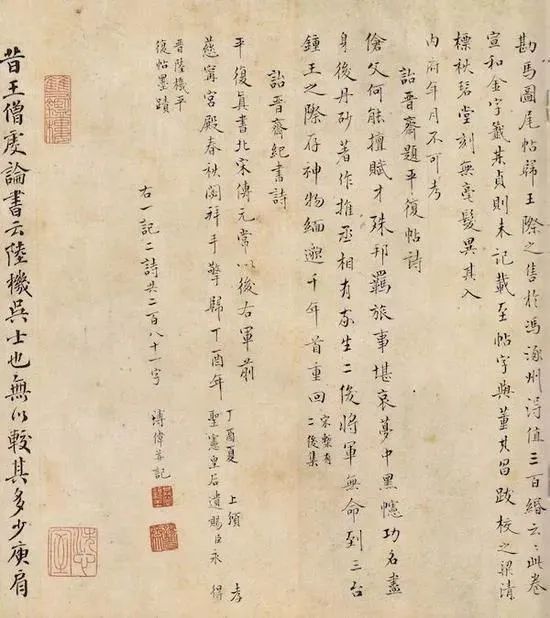 勘馬圖尾帖歸王際之售於馮涿州得值三百緡云云此卷
宣和金字籤朱貞則未記載至帖字與董其昌跋校之梁清
標秋碧堂刻無毫髮異其入
內府年月不可考
詒晉齋題平復帖詩
傖父何能擅賦才殊邦羈旅事堪哀夢中黑幰功名盡
身後丹砂著作推丞相有家生二後將軍無命到三台
宋槧有
二俊集
鍾王之際存神物緬邈千年首重回
詒晉齋紀書詩
平復真書北宋傳元常以後右軍前
慈寧宮殿春秋閟祥手擎歸丁酉年
丁酉夏 上頒 孝
聖憲皇后遺賜臣永 得
晉陸機平
復帖墨蹟
右一記二詩共二百八十一字 溥偉並記
昔王僧虔論書云陸機吳士也無以較其多少庾肩